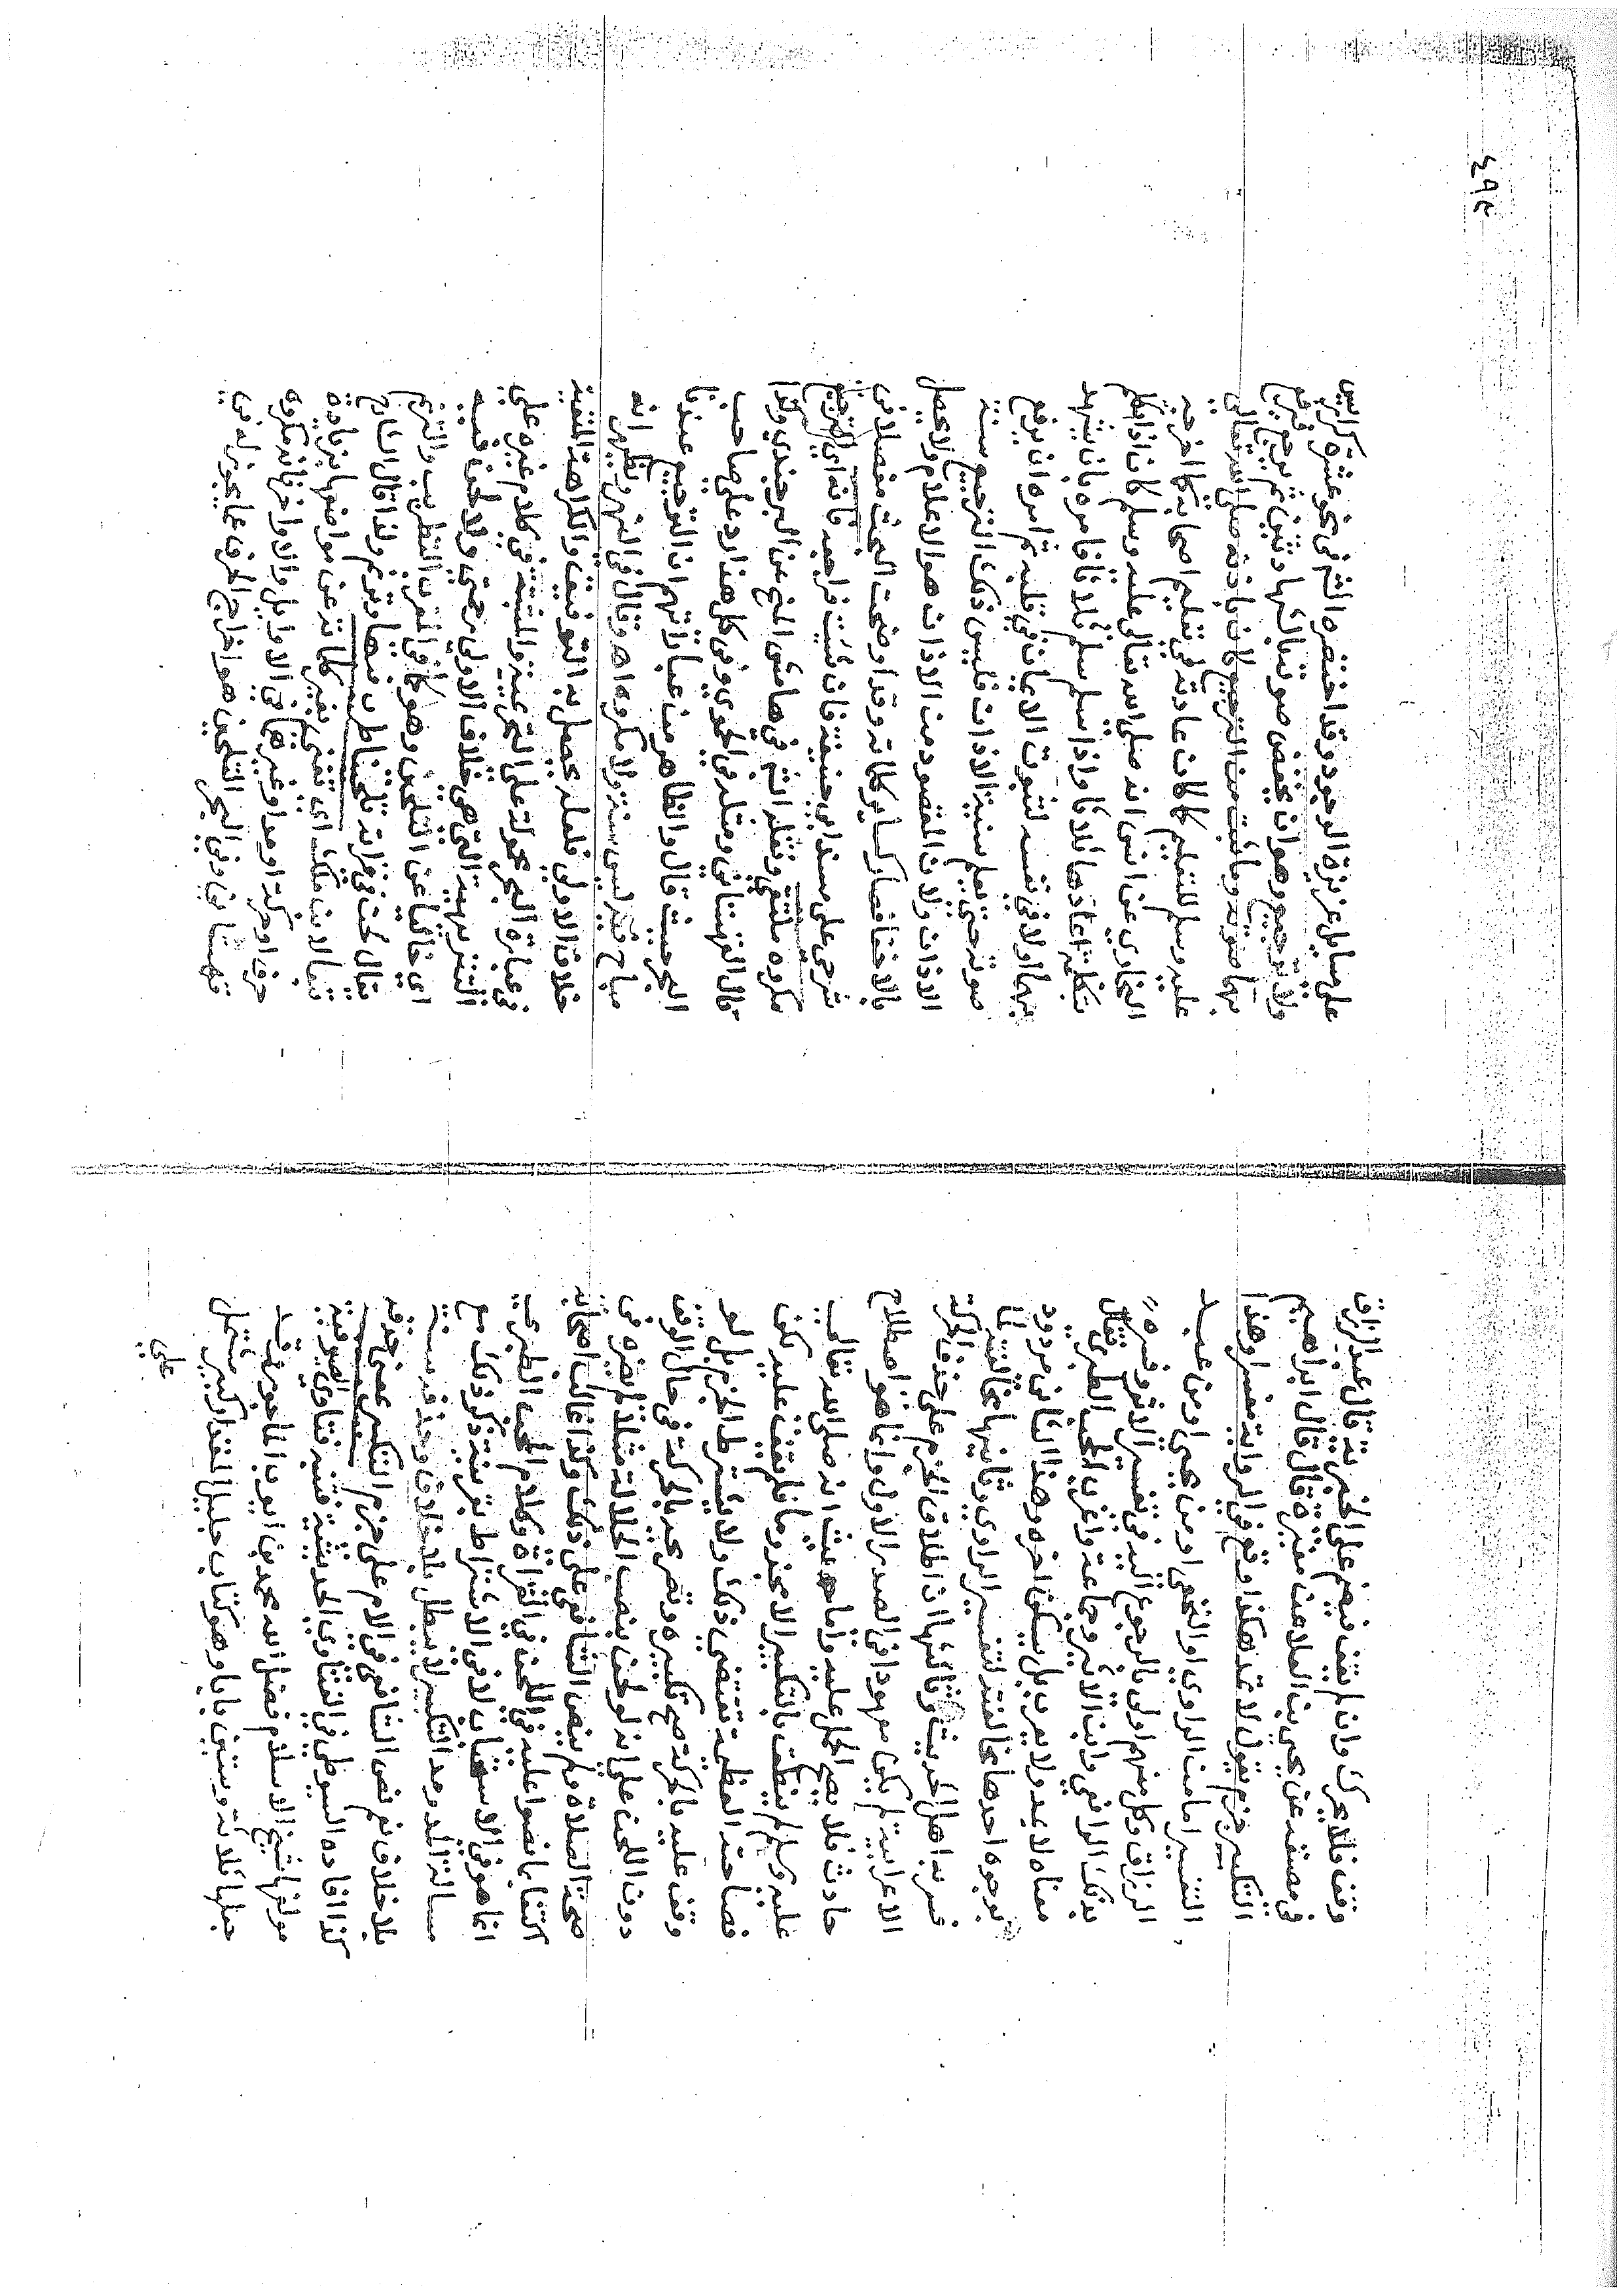 ٤٩٤
وقف فلا يحرك وان لم يقف فيضم على الخبرية قال عبد الرزاق
في مصنفه عن يحيى بن العلا عن مغيرة قال قال ابراهيم
التكبير جزم يقول لا يمد هكذا وقع في الرواية مفسرا وهذا
التفسير اما من الراوي او النخعي او من يحيى او من عبد
الرزاق وكل منهم اولى بالرجوع اليه في تفسير الاثر وفسره
بذلك الرافعي وابن الاثير وجماعة واغرب المحب الطبري فقال
معناه لا يمد ولا يعرب بل يسكن اخره وهذا الثاني مردود
بوجوه احدها مخالفته لتفسير الراوي وثانيها مخالفته لما
فسره به اهل الحديث وثالثها ان اطلاق الجزم على حذف الحركة
الاعرابية لم يكن معهودا في الصدر الاول وانما هو اصطلاح
حادث فلا يصح الحمل عليه واما هل ثبت انه صلى الله تعالى
عليه وسلم لم ينطق بالتكبير الا مجزوما فلم يقف عليه لكن
فصاحته العظيمة تقتضي ذلك ولا يشترط الجزم بل لو
وقف عليه بالحركة صح تكبيره في حال الوقف
دون اللحن على انه لو لحن بنصب الجلالة مثلا لم يضره في
صحة الصلاة ولم ينص الشافعي على ذلك وكذا غالب اصحابه
اكتفا بما نصوا عليه في اللحن في القراة وكلام المحب الطبري
انما هو في الاستحباب لا في الاشتراط بقرينة ذكره ذلك مع
مسالة المد ومد التكبير لا يبطل بلا خلاف وحذفه سنة
بلا خلاف نعم نص الشافعي في الام على جزم التكبير بمعنى حذفه
كذا افاده السيوطي في الفتاوي الحديثية فتنبه فتاوي الصوفية
مولفها الشيخ الاسلام فضل الله محمد بن ايوب وقد
جعلها ثلاثة وستين بابا وهو كتاب جليل المقدار كبير مشتمل
على
على مسايل عزيزة الوجود وقد اختصره الشم في نحو عشرة كراريس
ولا ترجيع وهو ان يخفض صوته بالشهادتين ثم يرجع فيرفع
بهما صوته وما ثبت من الترجيع كان باذنه صلى الله تعالى
عليه وسلم للتعليم كما كان عادته في تعليم اصحابه كما اخرجه
البخاري عن انس انه صلى الله تعالى عليه وسلم كان اذا تكلم
بكلمة اعادها ثلاثا واذا سلم سلم ثلاثا فامره بان يتشهد
بهما اولا في نفسه لثبوت الايمان في قلبه ثم امره ان يرفع
صوته حتى تعلم سنية الاذان فليس ذلك الترجيع سنة
الاذان ولان المقصود من الاذان هو الاعلام ولا يحصل
بالاخفا فصار كساير كلماته وقد اوضحت البحث مفصلا في
شرحي على مسند ابي حنيفة فان شئت فراجعه فانه اي الترجيع
مكروه ملتقى ونقله الشم في هامش المنح عن البرجندي وكذا
قال القهستاني ومثله في الحموي وفي كل هذا رد على صاحب
البحر حيث قال والظاهر من عباراتهم ان الترجيع عندنا
مباح فيه ليس بسنة ولا مكروه اه وقال في النهر ويظهر انه
خلاف الاولى فلعله يحصل به التوفيق والكراهة المنفية
في عبارة البحر محمولة على التحريمية والمثبتة في كلام غيره على
التنزيهية التي هي خلاف الاولى رحمتي ولا لحن فيه
اي خاليا عن التلحين وهو كما في المغرب التطريب والترنم
يقال لحن في قراته تلحينا طرب فيها وترنم ولذا قال الشارح
تغني بغير كلماته عن مواضعها بزيادة
حرف او حركة او مد او غيرها في الاوايل والاواخر فانه مكروه
قهستاني وفي البحر التلحين هو اخراج الحرف عما يجوز له في